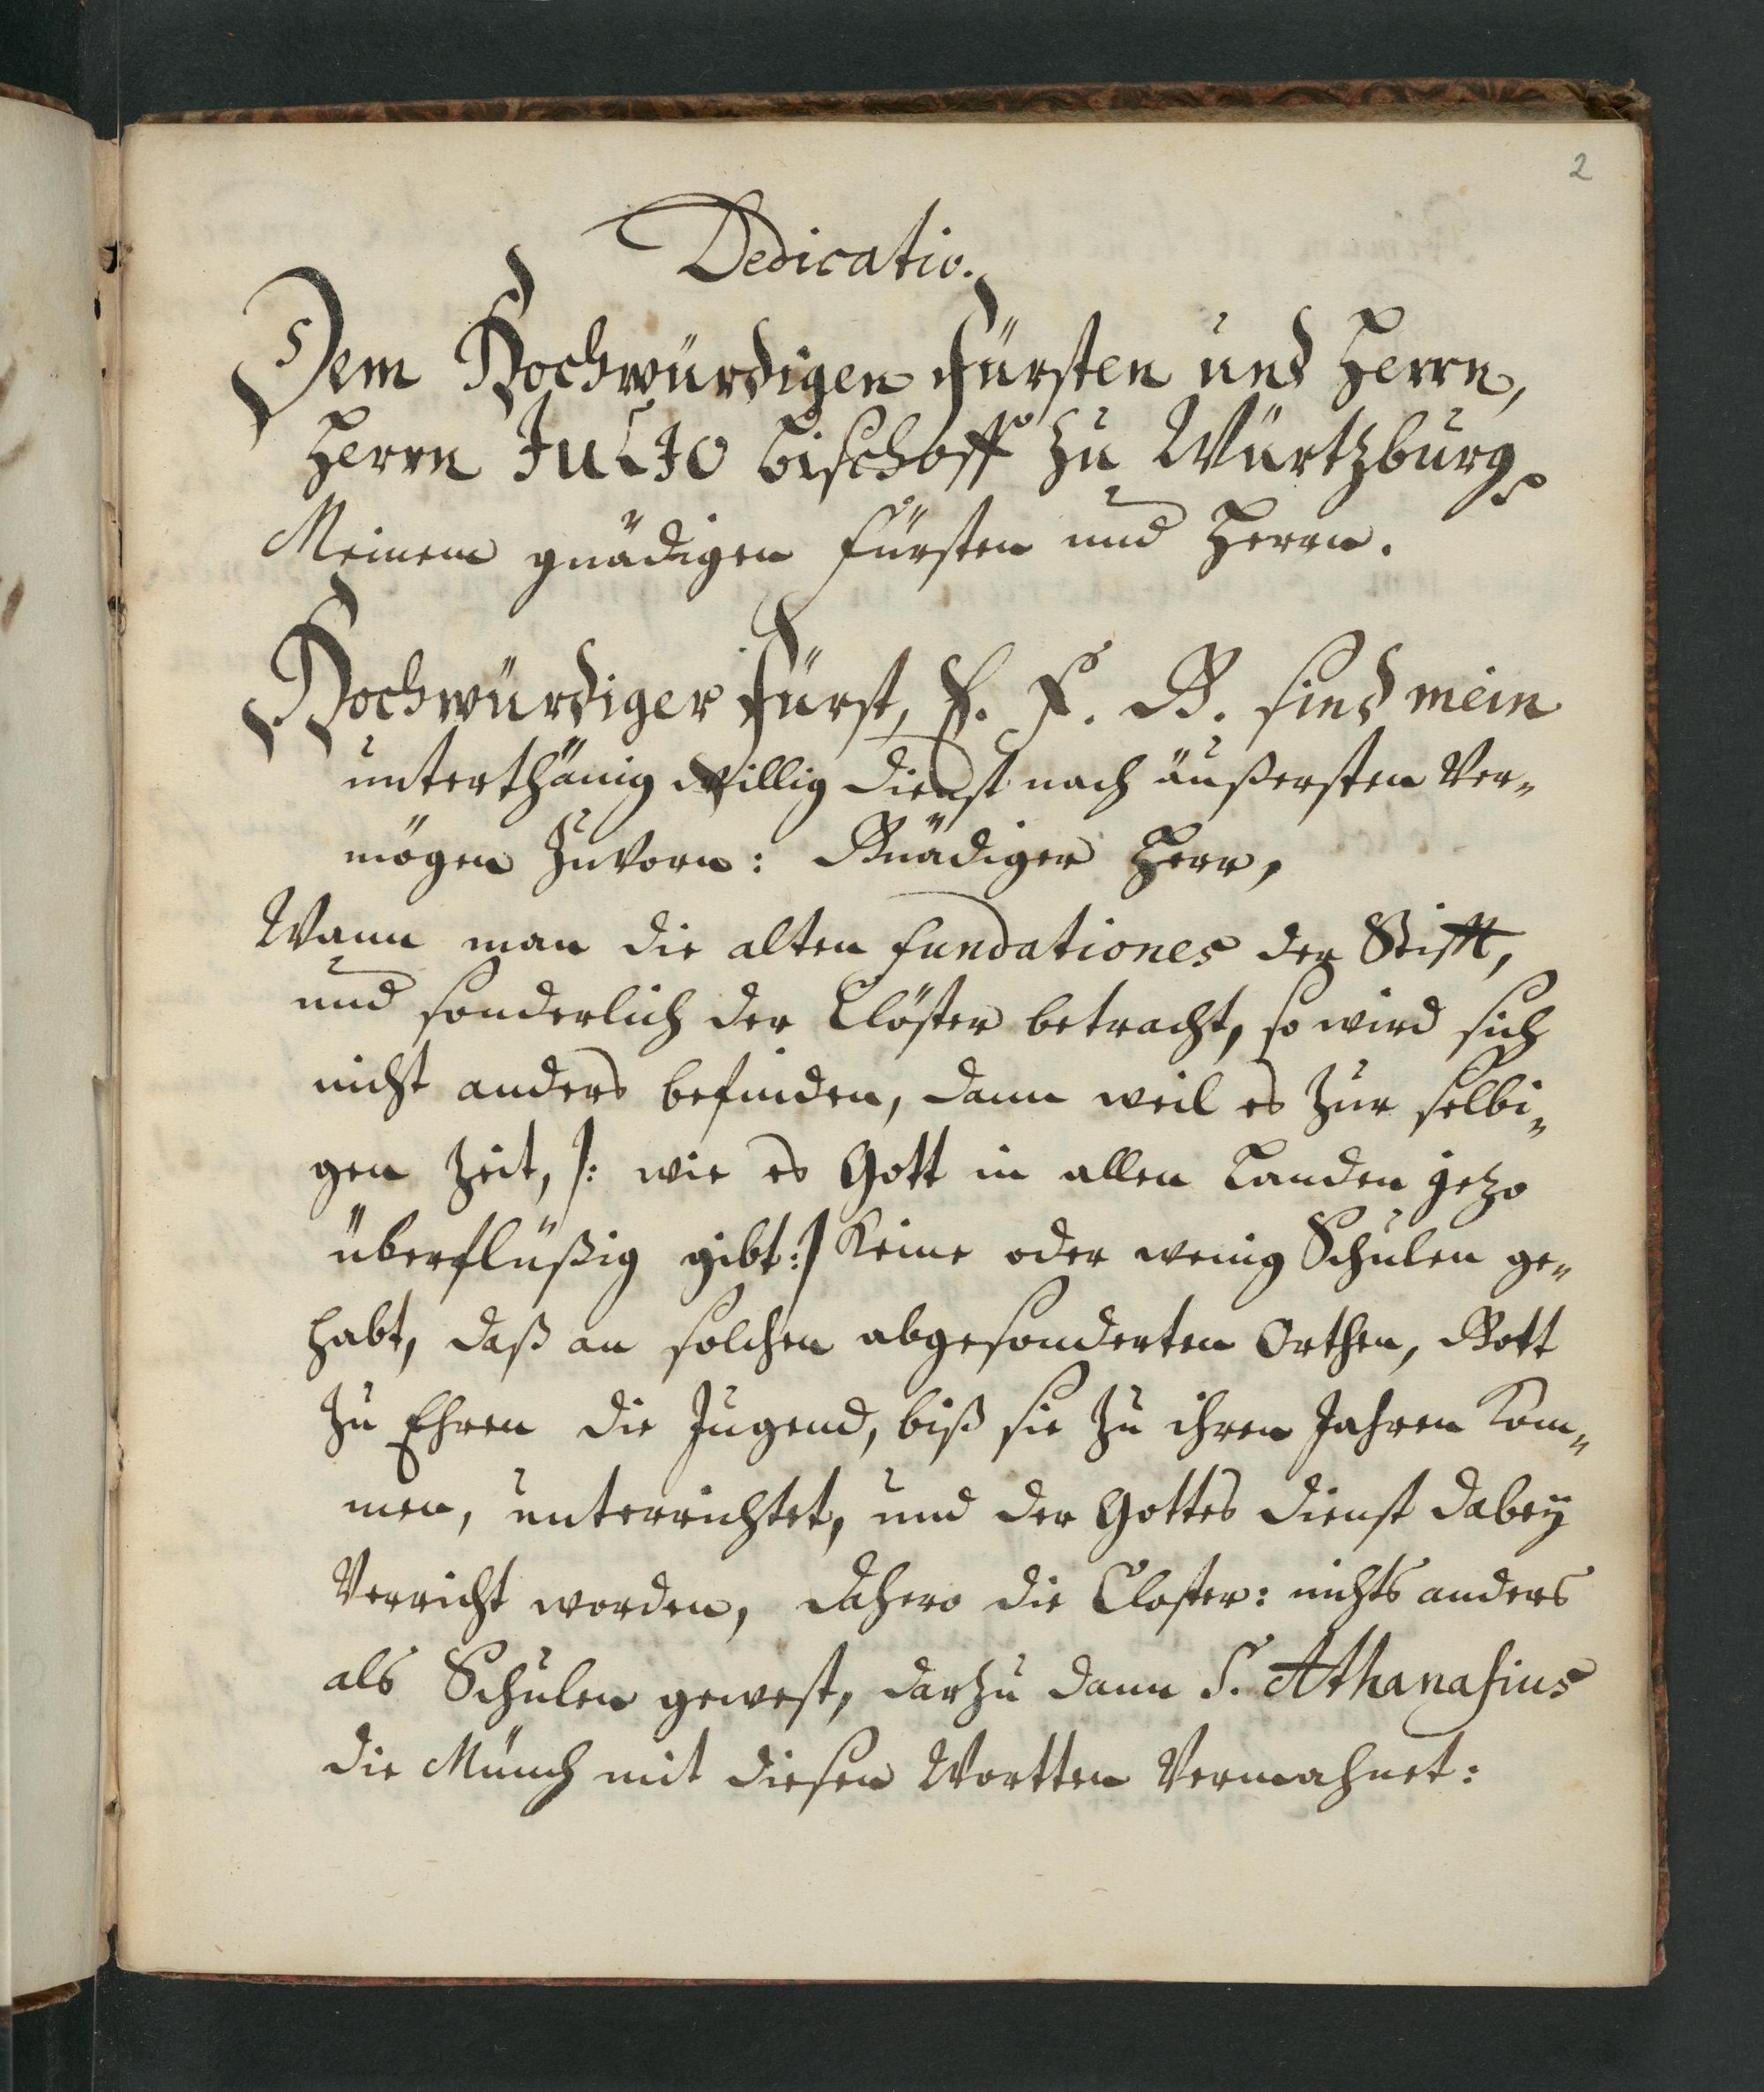 2
Dedicatio.
Dem Hochwürdigen Fürsten und Herrn,
Herrn JuLJo Bischoff zu Würtzburg
Meinem gnädigen Fürsten und Herrn.
Hochwürdiger Fürst, E. F. G. sind mein
unterthänig willig Dienst nach äußersten Ver„
mögen zuvorn: Gnädiger Herr,
Wann man die alten fundationes der Stifft,
und sonderlich der Clöster betracht, so wird sich
nicht anders befinden, dann weil es zur selbi„
gen Zeit, /: wie es Gott in allen Landen jetzo
überflüßig gibt:/ Keine oder wenig Schulen ge„
habt, daß an solchen abgesonderten Orthen, Gott
zu Ehren die Jugend, biß sie zu ihren Jahren Kom„
men, unterrichtet, und der Gottes Dienst dabey
Verricht worden, dahero die Closter: nichts anders
als Schulen gewest, darzu dann S. Athanasius
die Münch mit diesen Wortten Vermahnet: